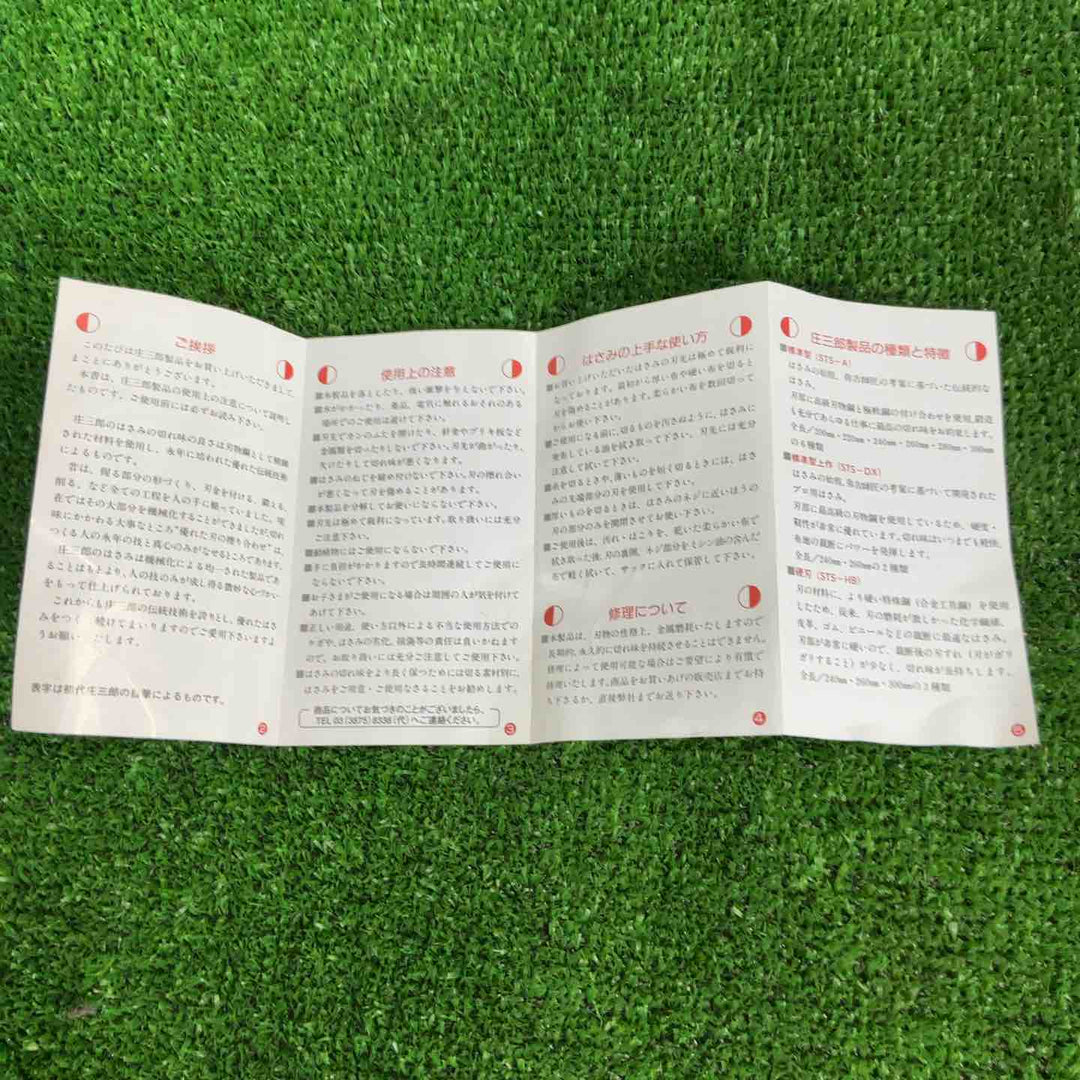 ご挨拶
このたびは庄三郎製品をお買い上げいただきまして、
まことにありがとうございます。
本書は、庄三郎製品の使用上の注意について説明し
たものです。ご使用前には必ずお読み下さい。
庄三郎のはさみの切れ味の良さは刃物鋼として精錬
された材料を使用し、永年に培われた優れた伝統技術
によるものです。
昔は、握る部分の形づくり、刃金を付ける、鍛える、
削る、など全ての工程を人の手に頼っていました。現
在ではその大部分を機械化することができましたが切れ
味にかかわる大事なところ“優れた刃の擦り合わせ”は、
つくる人の永年の技と真心のみがなせるところであります。
庄三郎のはさみは機械化による均一された製品であ
ることはもとより、人の技のみが成し得る微妙な心づかい
をもって仕上げられております。
これからも庄三郎の伝統技術を誇りとし、優れたはさ
みをつくり続けてまいりますのでご愛用下さいますよ
うお願いいたします。
表字は初代庄三郎の自筆によるものです。
2
使用上の注意
■本製品を落としたり、強い衝撃を与えないで下さい。
■水がかかったり、薬品、電気に触れるおそれのある
場所でのご使用は避けて下さい。
■刃先でカンのふたを開けたり、針金やブリキ板など
金属類を切ったりしないで下さい。刃先が曲がったり、
欠けたりして切れ味が悪くなります。
■はさみのねじを締め付けないで下さい。刃の擦れ合い
が悪くなって刃を傷めることがあります。
■本製品を分解してお使いにならないで下さい。
■刃先は極めて鋭利になっています。取り扱いには充分
ご注意下さい。
■動植物にはご使用にならないで下さい。
■手に負担がかかりますので長時間連続してご使用に
ならないで下さい。
■お子さまがご使用になる場合は周囲の人が気を付けて
あげて下さい。
■正しい用途、使い方以外による不当な使用方法での
ケガや、はさみの劣化、損傷等の責任は負いかねます
ので、お取り扱いには充分ご注意してご使用下さい。
■はさみの切れ味をより長く保つためには切る素材別に、
はさみをご用意・ご使用なさることをお勧めします。
商品についてお気づきのことがございましたら、
TEL 03(3875)8336(代)へご連絡ください。
3
はさみの上手な使い方
■お買い上げいただいたはさみの刃先は極めて鋭利に
なっております。最初から厚い布や硬い布を切ると
刃を傷めることがあります。柔らかい布を数回切って
からお使い下さい。
■ご使用になる前に、切るものを汚さぬように、はさみに
塗布している油を拭き取って下さい。刃先には充分
注意して拭いて下さい。
■糸を切るときや、薄いものを短く切るときには、はさ
みの先端部分の刃を使用して下さい。
■厚いものを切るときは、はさみのネジに近いほうの
刃の部分のみを開閉させてお使い下さい。
■ご使用後は、汚れ・ほこりを、乾いた柔らかい布で
拭き取った後、刃の裏側、ネジ部分をミシン油の含んだ
布で軽く拭いて、サックに入れて保管して下さい。
修理について
■本製品は、刃物の性格上、金属磨耗いたしますので
長期的、永久的に切れ味を持続させることはできません。
修理によって使用可能な場合はご要望により有償で
修理いたします。商品をお買いあげの販売店までお持
ち下さるか、直接弊社までお送り下さい。
4
庄三郎製品の種類と特徴
■標準型(STS-A)
はさみの始祖、弥吉師匠の考案に基づいた伝統的な
はさみ。
刃部に高級刃物鋼と極軟鋼の付け合わせを使用、鍛造
も充分であらゆる仕事に最高の切れ味をお約束します。
全長/200㎜・220㎜・240㎜・260㎜・280㎜・300㎜
の6種類
■標準型上作(STS-DX)
はさみの始祖、弥吉師匠の考案に基づいて開発された
プロ用はさみ。
刃部に最高級の刃物鋼を使用しているため、硬度・
靭性が非常に優れています。切れ味はいつまでも軽快、
布地の裁断にパワーを発揮します。
全長/240㎜・260㎜の2種類
■硬刃(STS-HB)
刃の材料に、より硬い特殊鋼(合金工具鋼)を使用
したため、従来、刃の磨耗が激しかった化学繊維、
皮革、ゴム、ビニールなどの裁断に最適なはさみ。
刃部が非常に硬いので、裁断後の刃すれ(刃がガリ
ガリすること)が少なく、切れ味が長持ちします。
全長/240㎜・260㎜・300㎜の3種類
5